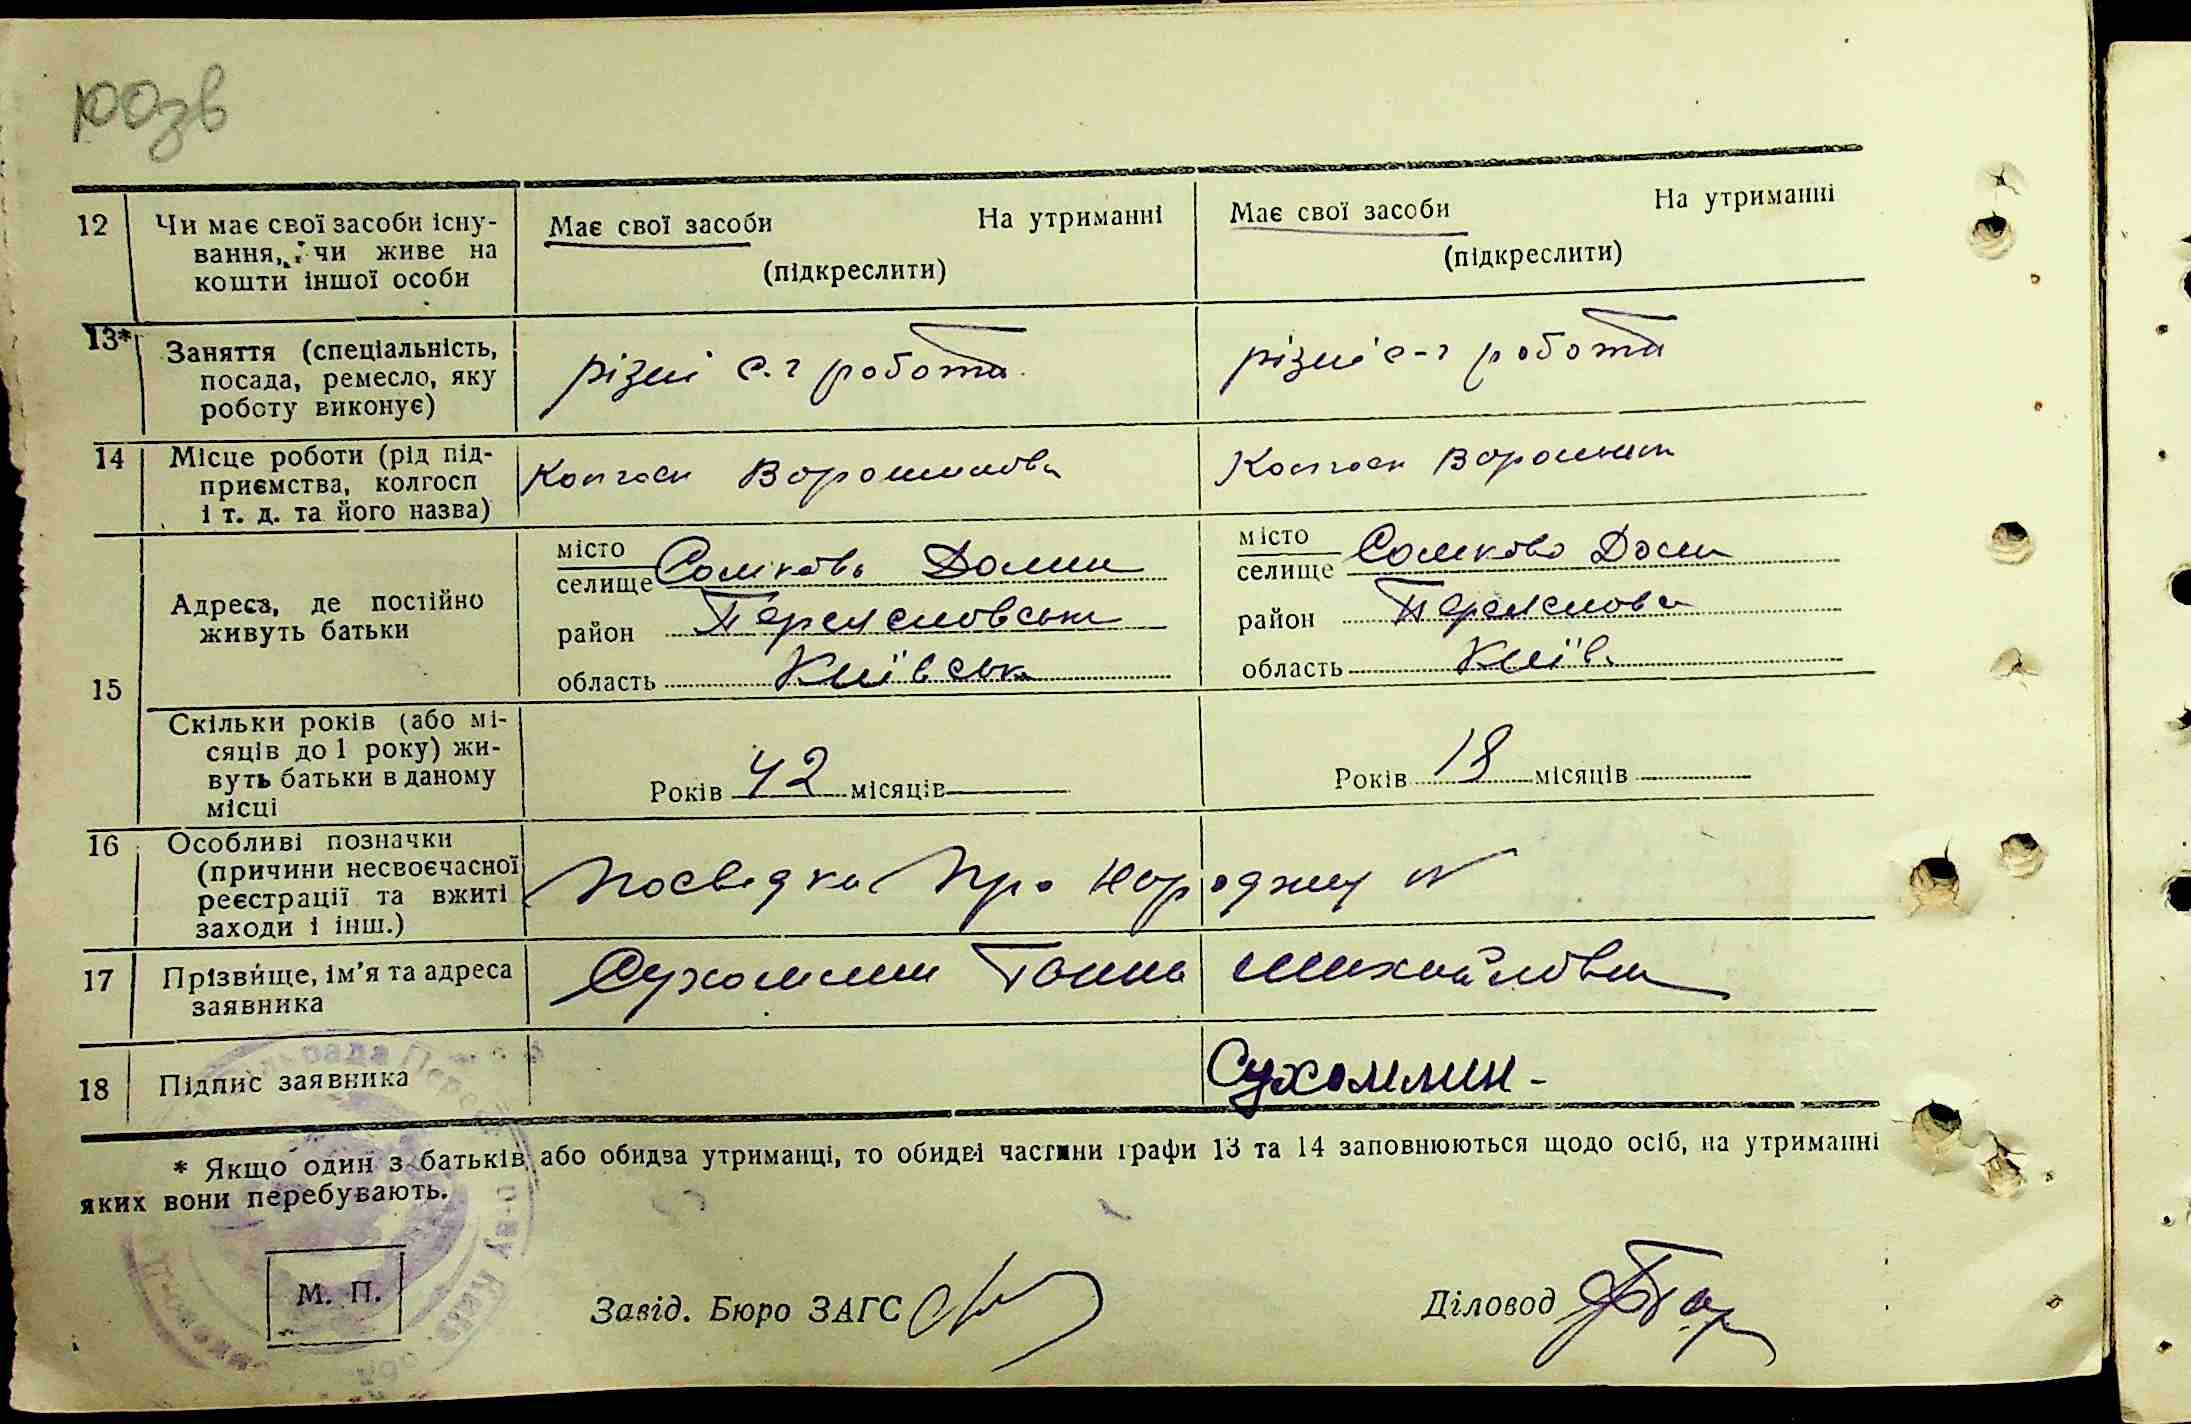 розв
12 Чи має свої засоби існу-
вання, чи живе на
кошти іншої особи
Має свої засоби На утриманні
(підкреслити)
Має свої засоби На утриманні
(підкреслити)
13* Заняття (спеціальність,
посада, ремесло, яку
роботу виконує)
різні с.г робота
різні с-г робота
14 Місце роботи (рід під-
приємства, колгосп
і т. д. та його назва)
Колгосп Ворошилова
Колгосп Ворошил
15 Адреса, де постійно
живуть батьки
місто
селище Сомкова Долин
район Переяславськ
область Київськ
місто
селище Сомково Доли
район Переяслов
область Київ
Скільки років (або мі-
сяців до 1 року) жи-
вуть батьки в даному
місці
Років 42 місяців
Років 18 місяців
16 Особливі позначки
(причини несвоєчасної
реєстрації та вжиті
заходи і інш.)
Посвідка про народжен №
17 Прізвище, ім’я та адреса
заявника
Сухомлин Ганна Михайловна
18 Підпис заявника
Сухомлин-
* Якщо один з батьків або обидва утриманці, то обидві частини графи 13 та 14 заповнюються щодо осіб, на утриманні
яких вони перебувають.
М. П.
Завід. Бюро ЗАГС
Діловод